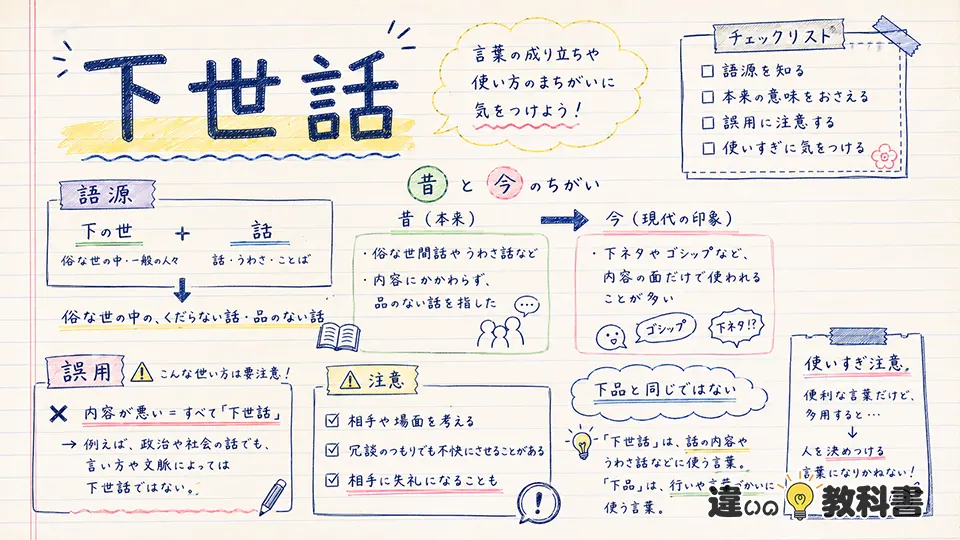 下世話
言葉の成り立ちや
使い方のまちがいに
気をつけよう！
チェックリスト
□ 語源を知る
□ 本来の意味をおさえる
□ 誤用に注意する
□ 使いすぎに気をつける
語源
下の世 + 話
俗な世の中・一般の人々 話・うわさ・ことば
俗な世の中の、くだらない話・品のない話
昔と今のちがい
昔（本来）
・俗な世間話やうわさ話など
・内容にかかわらず、
品のない話を指した
今（現代の印象）
・下ネタやゴシップなど、
内容の面だけで使われる
ことが多い
ゴシップ
下ネタ!?
誤用
こんな世い方は要注意！
× 内容が悪い＝すべて「下世話」
→ 例えば、政治や社会の話でも、
言い方や文脈によっては
下世話ではない。
注意
☑ 相手や場面を考える
☑ 冗談のつもりでも不快にさせることがある
☑ 相手に失礼になることも
下品と同じではない
「下世話」は、話の内容や
うわさ話などに使う言葉。
「下品」は、行いや言葉づかいに
使う言葉。
使いすぎ注意。
便利な言葉だけど、
多用すると…
↓
人を決めつける
言葉になりかねない！
違いの教科書